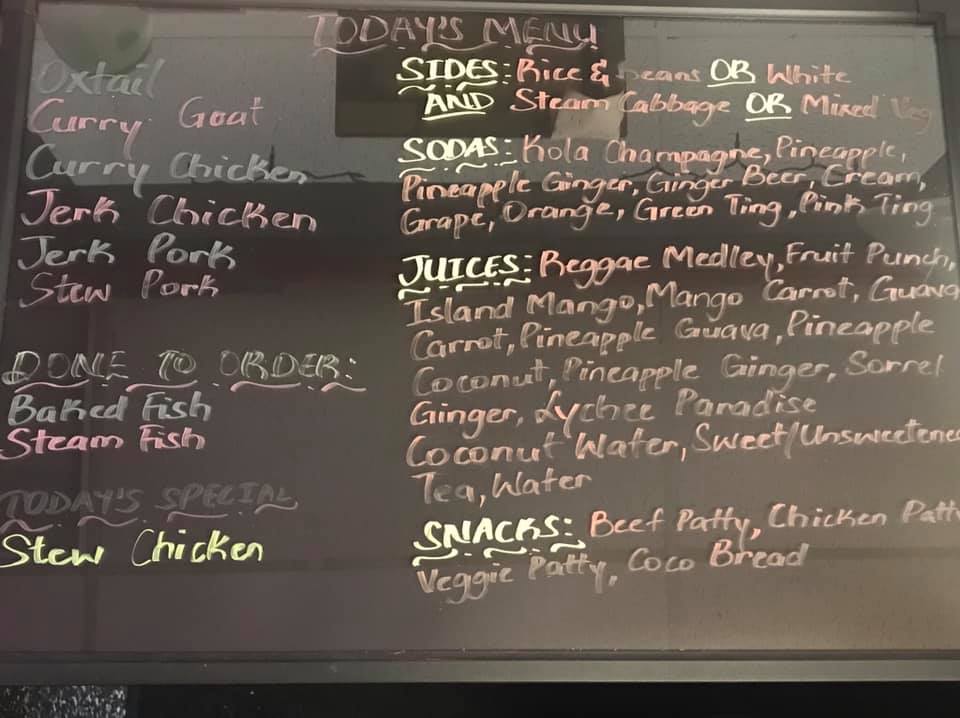 TODAY'S MENU
Oxtail
Curry Goat
Curry Chicken
Jerk Chicken
Jerk Pork
Stew Pork
DONE TO ORDER:
Baked Fish
Steam Fish
TODAY'S SPECIAL
Stew Chicken
SIDES: Rice & beans OR White
AND Steam Cabbage OR Mixed Veg
SODAS: Kola Champagne, Pineapple,
Pineapple Ginger, Ginger Beer, Cream,
Grape, Orange, Green Ting, Pink Ting
JUICES: Reggae Medley, Fruit Punch,
Island Mango, Mango Carrot, Guava
Carrot, Pineapple Guava, Pineapple
Coconut, Pineapple Ginger, Sorrel
Ginger, Lychee Paradise
Coconut Water, Sweet/Unsweetened
Tea, Water
SNACKS: Beef Patty, Chicken Patty
Veggie Patty, Coco Bread